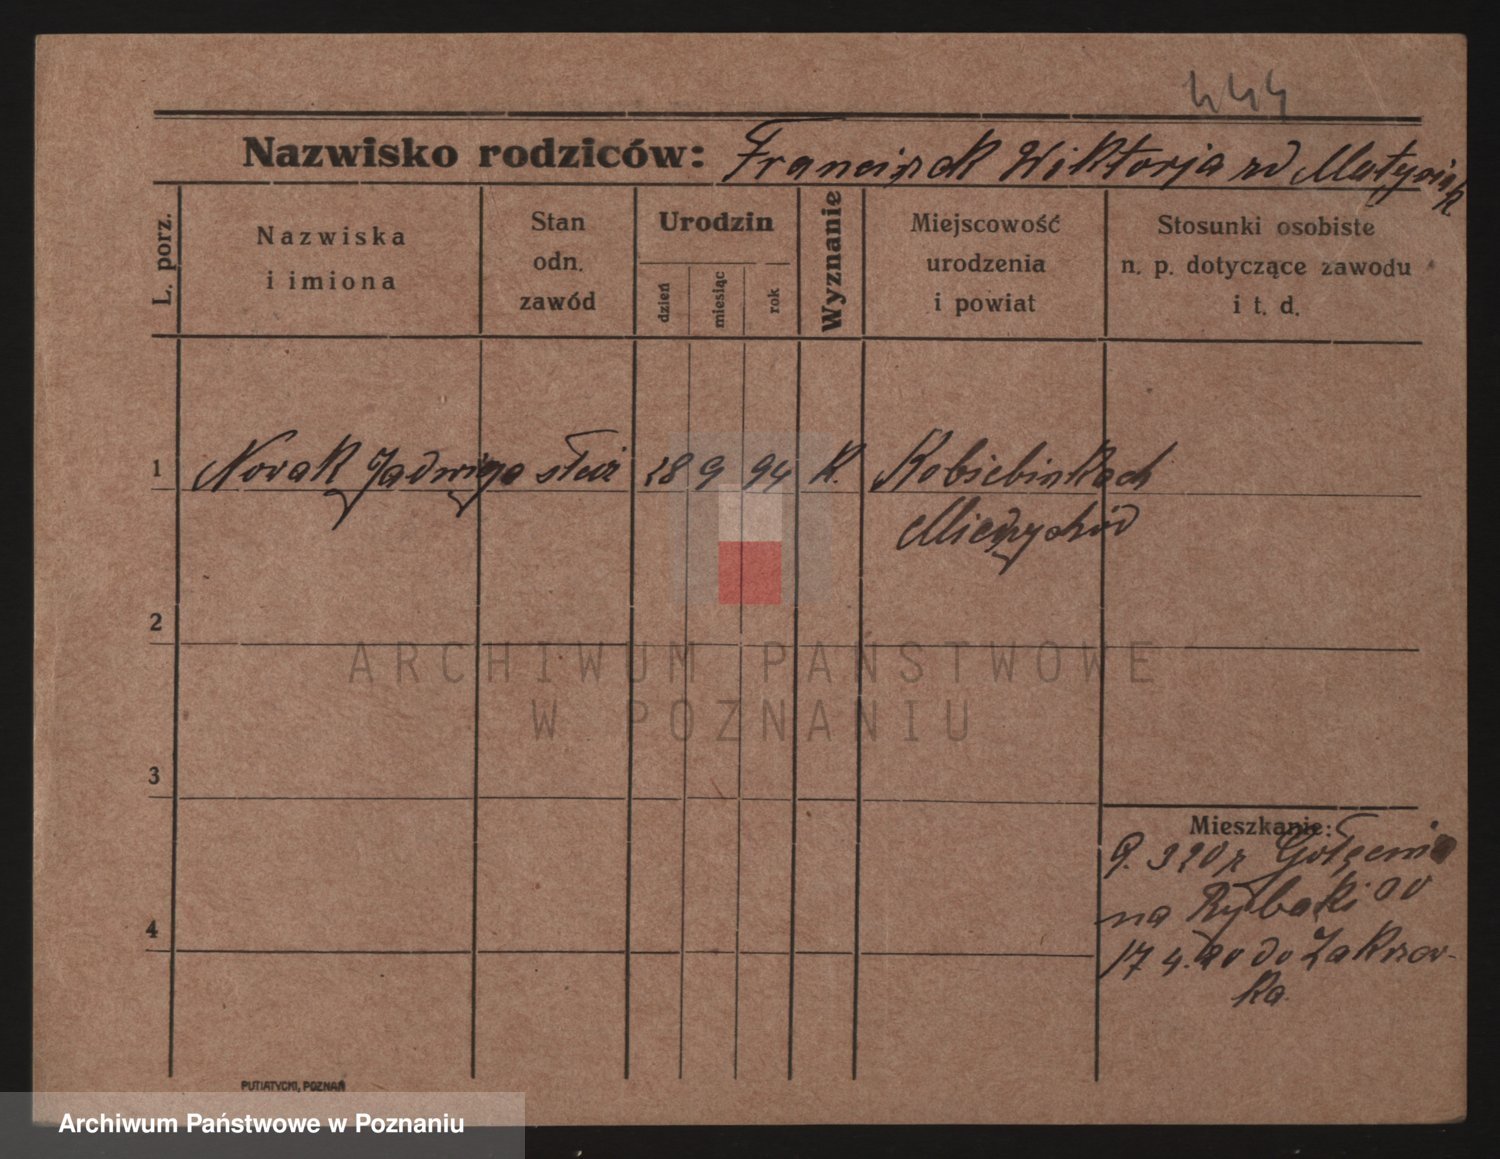 444
Nazwisko rodziców: Franciszek Wiktorja zd Matysiak
L. porz.
Nazwiska
i imiona
Stan
odn.
zawód
Urodzin
dzień
miesiąc
rok
Wyznanie
Miejscowość
urodzenia
i powiat
Stosunki osobiste
n. p. dotyczące zawodu
i t. d.
1 Nowak Jadwiga służ 28 9 94 K.
Międzychód
2
ARCHIWUM PAŃSTWOWE
W POZNANIU
3
Mieszkanie:
9. 3 20 z
na Rybaki
17 4. 20 do Zakrzew-
ka
4
PUTIATYCKI, POZNAŃ
Archiwum Państwowe w Poznaniu